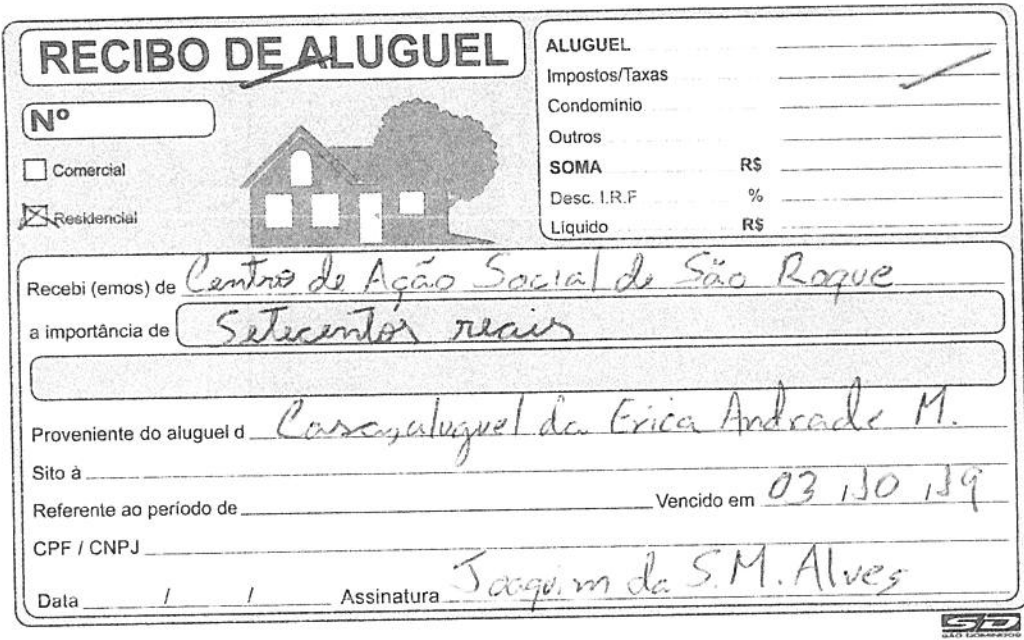 RECIBO DE ALUGUEL
Nº
Comercial
Residencial
ALUGUEL
Impostos/Taxas
Condomínio
Outros
SOMA R$
Desc. I.R.F %
Líquido R$
Recebi (emos) de Centro de Ação Social de São Roque
a importância de Setecentos reais
Proveniente do aluguel d Casa, aluguel da Erica Andrade M.
Sito à
Referente ao período de Vencido em 03 / 10 / 19
CPF / CNPJ
Data / / Assinatura Joaquim da S. M. Alves
SD
SÃO DOMINGOS